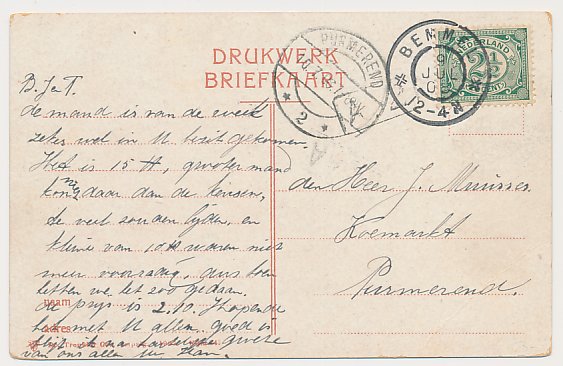 DRUKWERK
BRIEFKAART
PURMEREND
2
BEMME
9
JUL
12-4N
NEDERLAND
2½
CENT
B. J & T.
de mand is van de week
zeker wel in U bezit gekomen.
Het is 15 ℔, grooter mand
kon daar dan de
de veel zouden lijden, en
kleine van 10 ℔ waren niet
meer voorradig, dus toen
hebben we het zoo gedaan.
naam
de prijs is 2.10. Hopende
adres
het met U allen goed is
blijf ik na hartelijke groete
van ons allen uw
den Heer J. Muusses
Koemarkt
Purmerend.